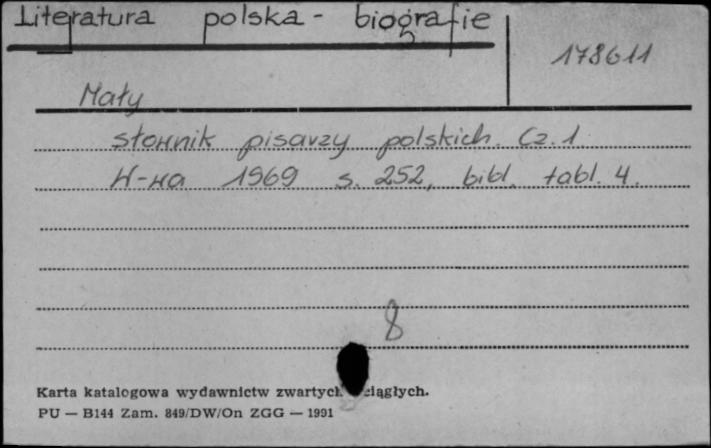 Literatura polska - biografie
178611
Mały
słownik pisarzy polskich. Cz. 1
W-wa 1969 s. 252, bibl. tabl. 4.
8
Karta katalogowa wydawnictw zwartych ciągłych.
PU — B144 Zam. 849/DW/On ZGG — 1991